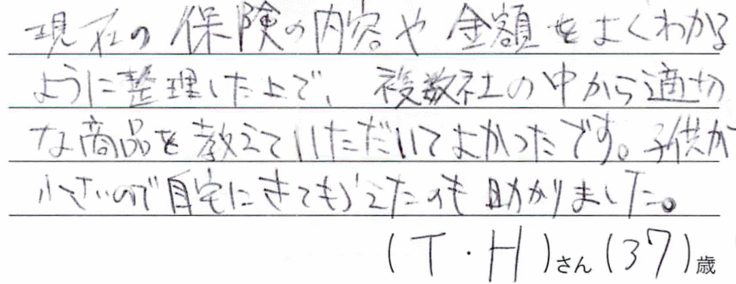 現在の保険の内容や金額をよくわかる
ように整理した上で、複数社の中から適切
な商品を教えていただいてよかったです。子供が
小さいので自宅にきてもらえたのも助かりました。
(T・H)さん(37)歳